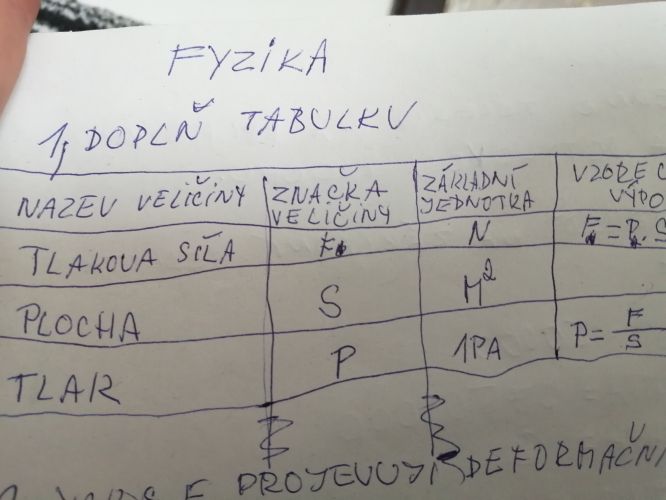 FYZIKA
1, DOPLŇ TABULKU
NAZEV VELIČINY ZNAČKA VELIČINY ZÁKLADNÍ JEDNOTKA VZOREC VÝPO
TLAKOVA SÍLA F N F=P.S
PLOCHA S M²
TLAK P 1PA P=F/S
SE PROJEVUJÍ DEFORMAČNÍ